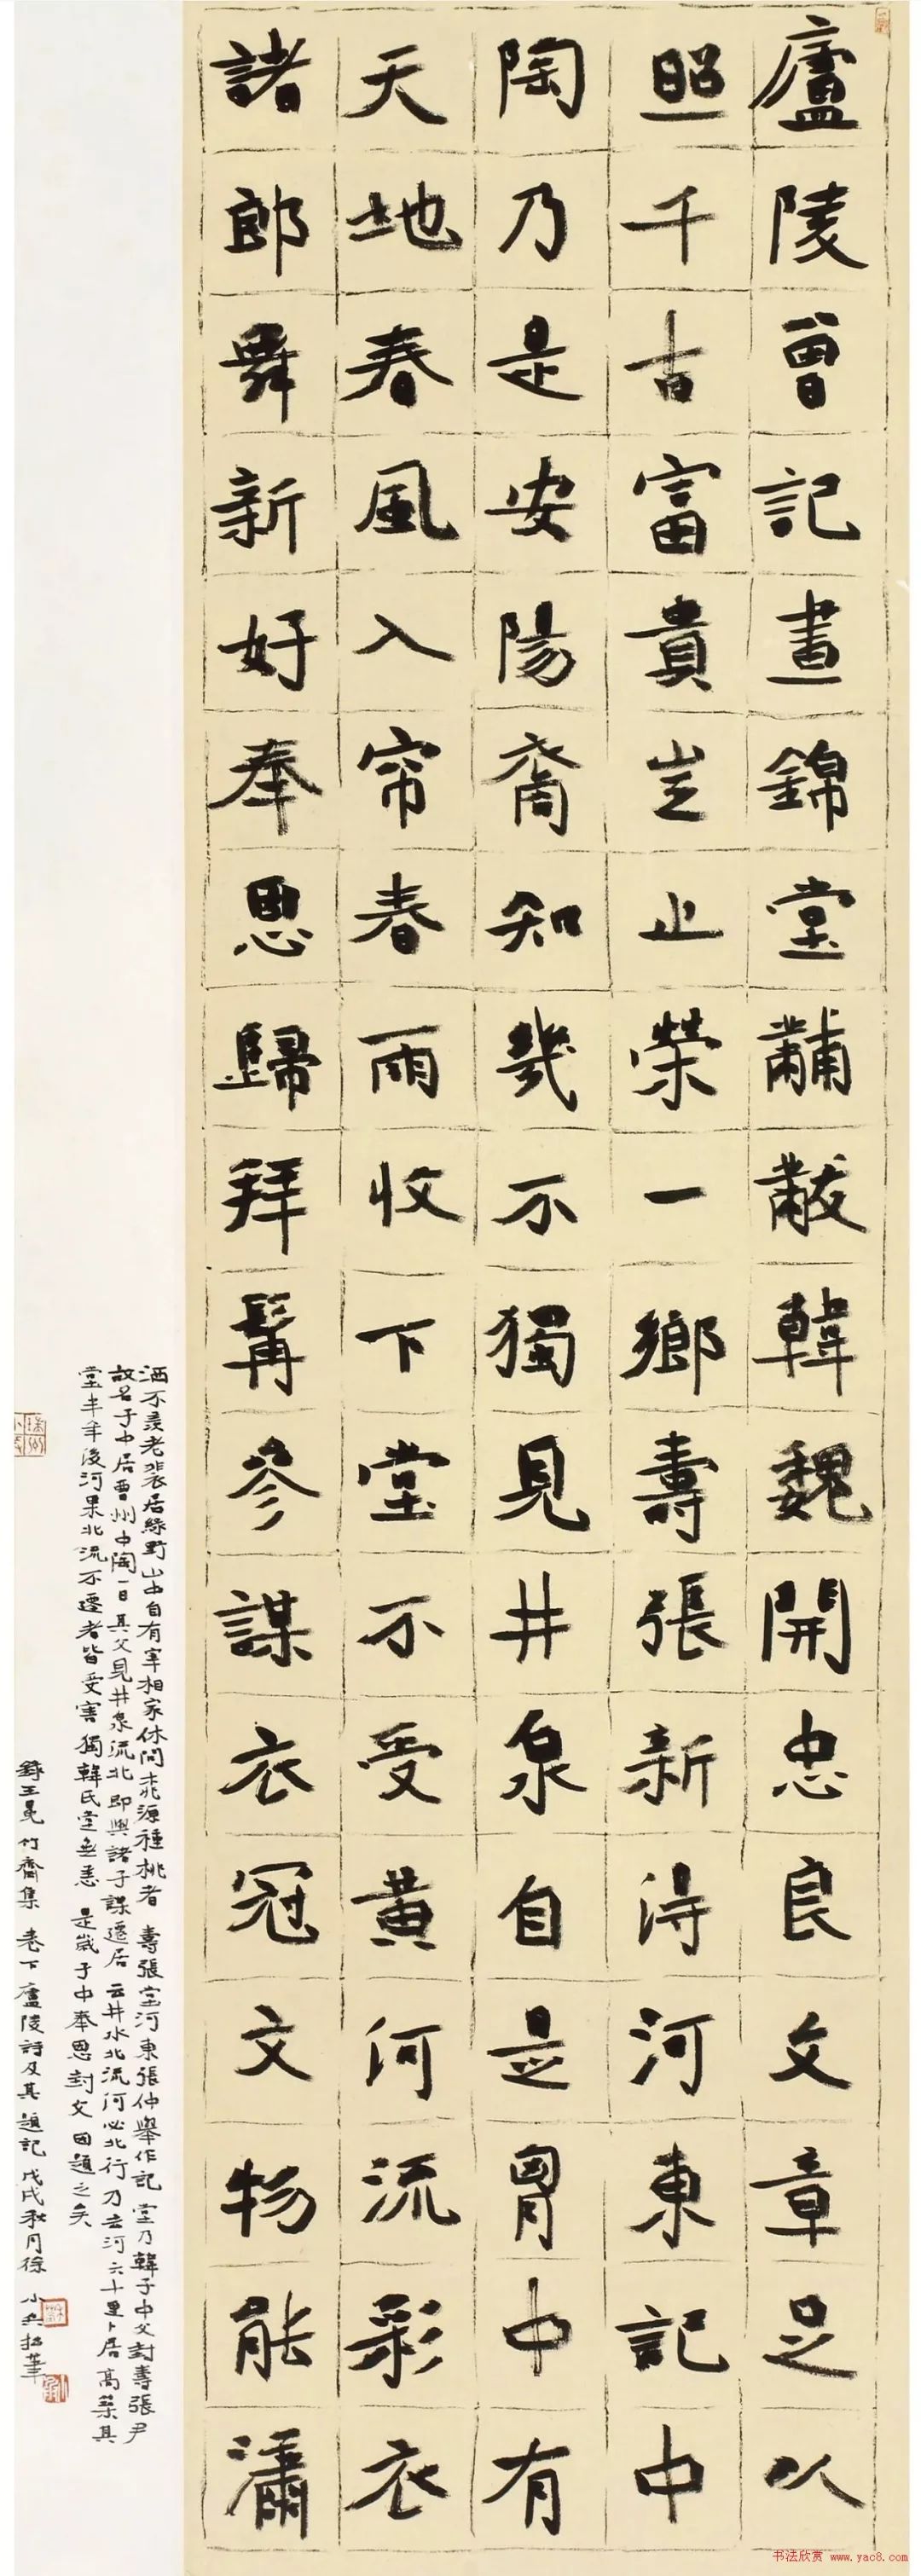 廬陵曾記晝錦堂黼黻韓魏開忠良文章足以
照千古富貴豈止榮一鄉壽張新淂河東記中
陶乃是安陽裔知幾不獨見井泉自是胷中有
天地春風入帘春雨收下堂不受黃河流彩衣
諸郎舞新好奉恩歸拜髯參謀衣冠文物能瀟
洒不羨老裴居綠野山中自有宰相家休問桃源種桃者 壽張堂河東張仲舉作記 堂乃韓子中父封壽張尹
故名子中居曹州中陶一日其父見井泉流北即與諸子謀遷居云井水北流河必北行乃去河六十里卜居高築其
堂半年後河果北流不遷者皆受害獨韓氏堂無恙 是歲子中奉恩封父因題之矣
錄王冕竹齋集卷下廬陵詩及其題記戊戌秋月徐小兵拙筆
书法欣赏 www.yac8.com